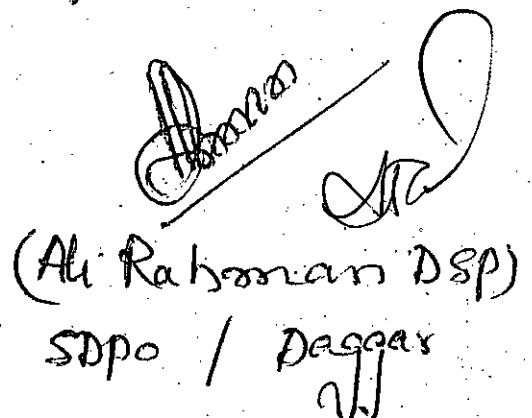 (Ali Rahman DSP)
SDPO / Daggar